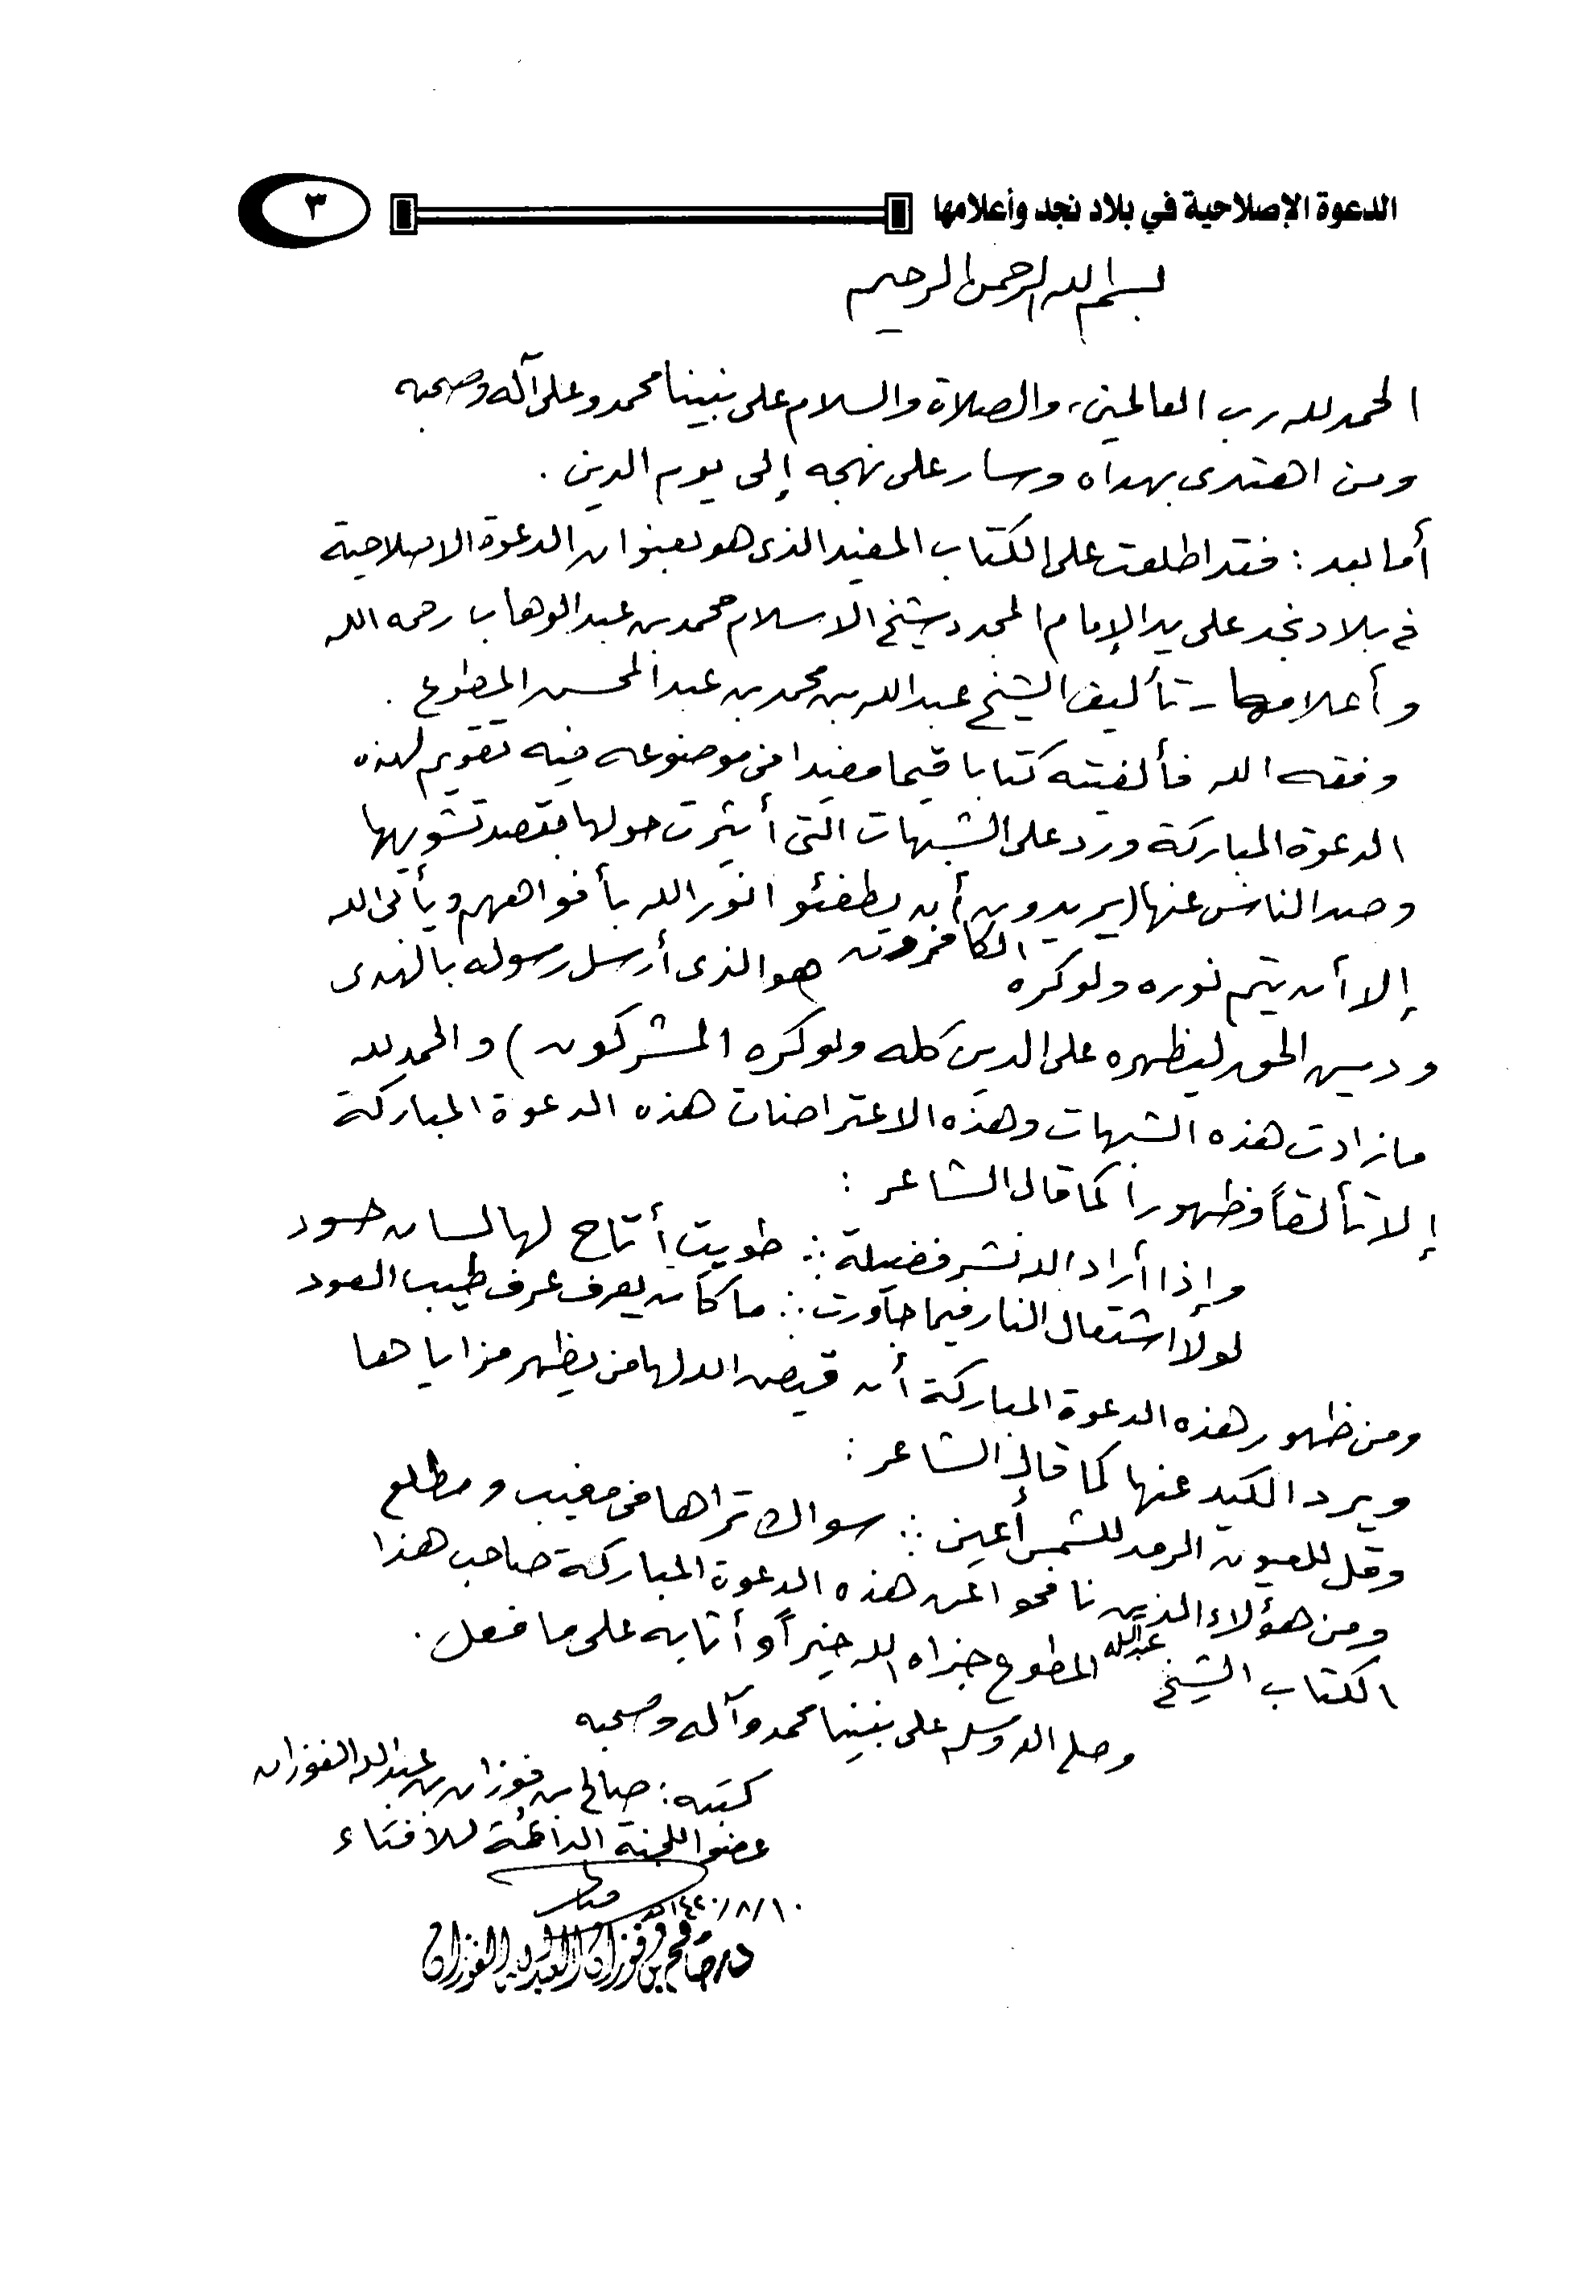 الدعوة الإصلاحية في بلاد نجد وأعلامها
٣
بسم الله الرحمن الرحيم
الحمد لله رب العالمين، والصلاة والسلام على نبينا محمد وعلى آله وصحبه
ومن اهتدى بهداه وسار على نهجه إلى يوم الدين .
أما بعد : فقد اطلعت على الكتاب المفيد الذي هو بعنوان الدعوة الاصلاحية
في بلاد نجد على يد الإمام المجدد شيخ الاسلام محمد بن عبد الوهاب رحمه الله
وأعلامها - تأليف الشيخ عبد الله بن محمد بن عبد المحسن المطوع .
وفقه الله فألفيته كتابا قيما مفيدا في موضوعه فيه تقويم لهذه
الدعوة المباركة ورد على الشبهات التي أثيرت حولها بقصد تشويهها
وصد الناس عنها (يريدون أن يطفئوا نور الله بأفواههم ويأبى الله
إلا أن يتم نوره ولو كره الكافرون هو الذي أرسل رسوله بالهدى
ودين الحق ليظهره على الدين كله ولو كره المشركون) والحمد لله
ما زادت هذه الشبهات وهذه الاعتراضات هذه الدعوة المباركة
إلا تألقاً وظهوراً كما قال الشاعر :
وإذا أراد الله نشر فضيلة ∴ طويت أتاح لها لسان حسود
لولا اشتعال النار فيما جاورت ∴ ما كان يعرف عرف طيب العود
ومن ظهور هذه الدعوة المباركة أن قيض الله لها من يظهر مزاياها
ويرد الكيد عنها كما قال الشاعر :
وقل للعيون الرمد للشمس أعين ∴ سواك تراها في مغيب ومطلع
ومن هؤلاء الذين نافحوا عن هذه الدعوة المباركة صاحب هذا
الكتاب الشيخ عبد الله المطوع جزاه الله خيراً وأثابه على ما فعل .
وصلى الله وسلم على نبينا محمد وآله وصحبه
كتبه : صالح بن فوزان بن عبد الله الفوزان
عضو اللجنة الدائمة للأفتاء
١٤٢٠/٨/١٠هـ
د. صالح بن فوزان العبدالله الفوزان